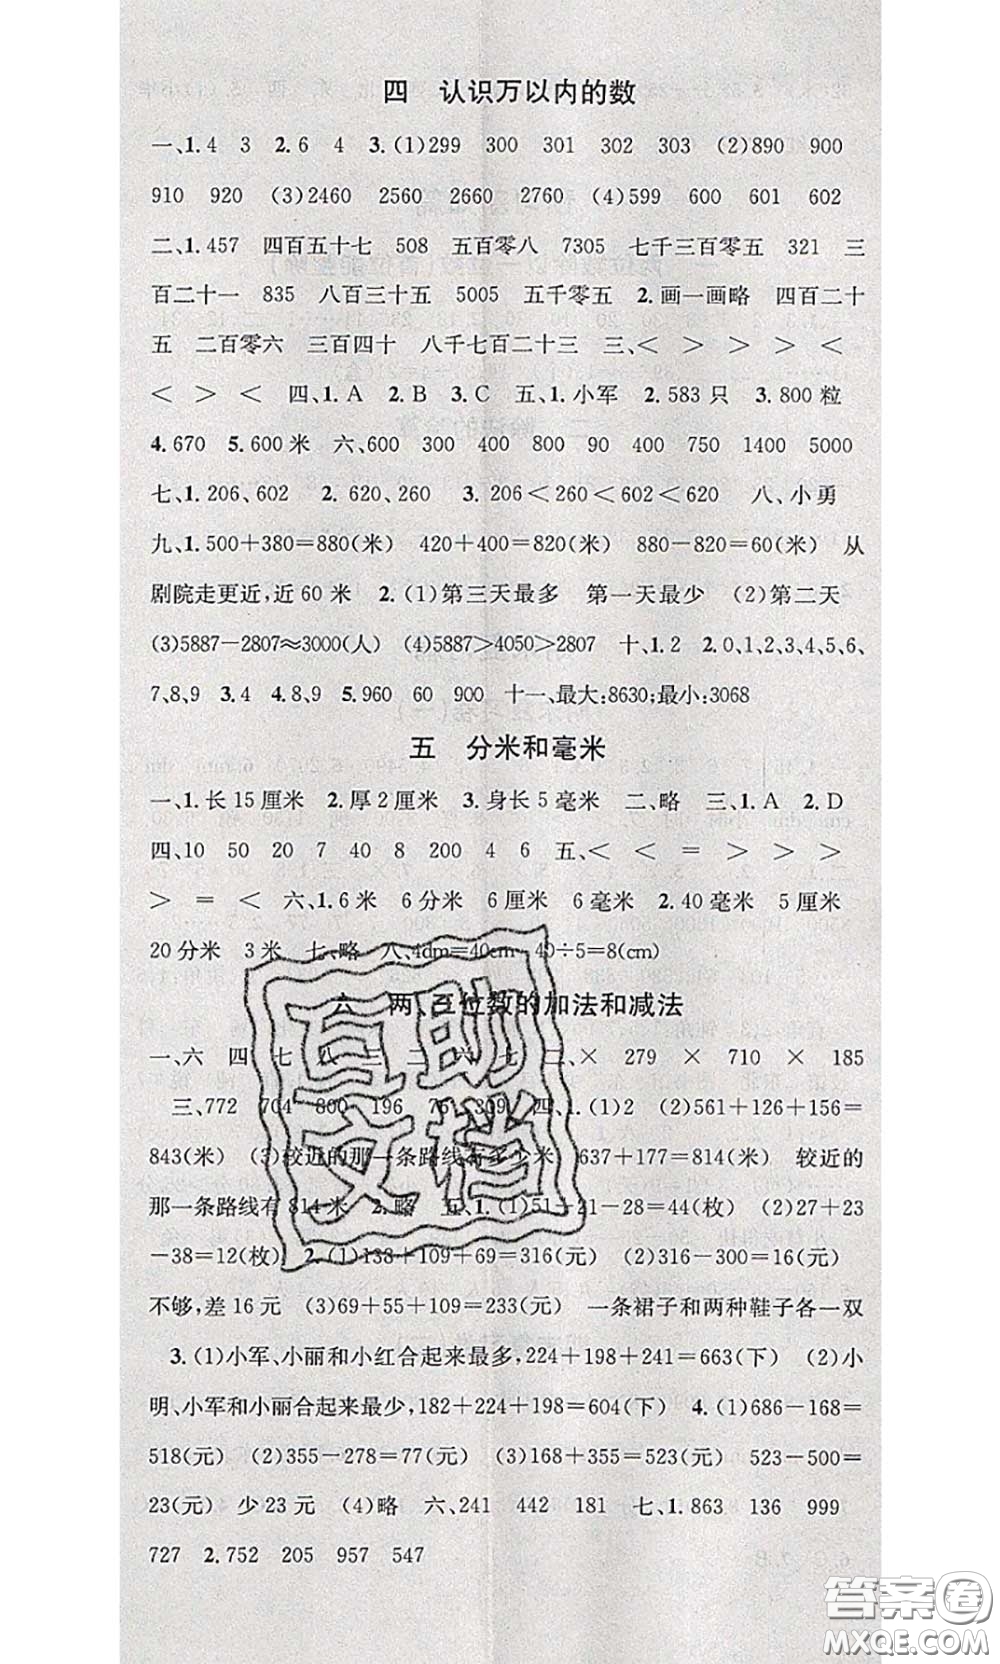 四 认识万以内的数
一、1.4 3 2.6 4 3.(1)299 300 301 302 303 (2)890 900
910 920 (3)2460 2560 2660 2760 (4)599 600 601 602
二、1.457 四百五十七 508 五百零八 7305 七千三百零五 321 三
百二十一 835 八百三十五 5005 五千零五 2.画一画略 四百二十
五 二百零六 三百四十 八千七百二十三 三、＜ ＞ ＞ ＞ ＜
＜ ＞ ＜ 四、1.A 2.B 3.C 五、1.小军 2.583只 3.800粒
4.670 5.600米 六、600 300 400 800 90 700 750 1400 5000
七、1.206、602 2.620、260 3.206＜260＜602＜620 八、小勇
九、1.500＋380＝880(米) 420＋400＝820(米) 880－820＝60(米) 从
剧院走更近,近60米 2.(1)第三天最多 第一天最少 (2)第二天
(3)5887－2807≈3000(人) (4)5887＞4050＞2807 十、1.2 2.0、1、2、3、4、5、6、
7、8、9 3.4 4.8、9 5.960 60 900 十一、最大:8630;最小:3068
五 分米和毫米
一、1.长15厘米 2.厚2厘米 3.身长5毫米 二、略 三、1.A 2.D
四、10 50 20 7 40 8 200 4 6 五、＜ ＜ ＝ ＞ ＞ ＞
＞ ＝ ＜ 六、1.6米 6分米 6厘米 6毫米 2.40毫米 5厘米
20分米 3米 七、略 八、4dm＝40cm 40÷5＝8(cm)
六 两、三位数的加法和减法
一、六 四 七 八 三 二 六 七 二、× 279 × 710 × 185
三、772 704 800 196 76 309 四、1.(1)2 (2)561＋126＋156＝
843(米) (3)较近的那一条路线有多少米 637＋177＝814(米) 较近的
那一条路线有814米 2.略 五、1.(1)51＋21－28＝44(枚) (2)27＋23
－38＝12(枚) 2.(1)138＋109＋69＝316(元) (2)316－300＝16(元)
不够,差16元 (3)69＋55＋109＝233(元) 一条裙子和两种鞋子各一双
3.(1)小军、小丽和小红合起来最多,224＋198＋241＝663(下) (2)小
明、小军和小丽合起来最少,182＋224＋198＝604(下) 4.(1)686－168＝
518(元) (2)355－278＝77(元) (3)168＋355＝523(元) 523－500＝
23(元) 少23元 (4)略 六、241 442 181 七、1.863 136 999
727 2.752 205 957 547
互助
文档
答案圈
MXQE.COM